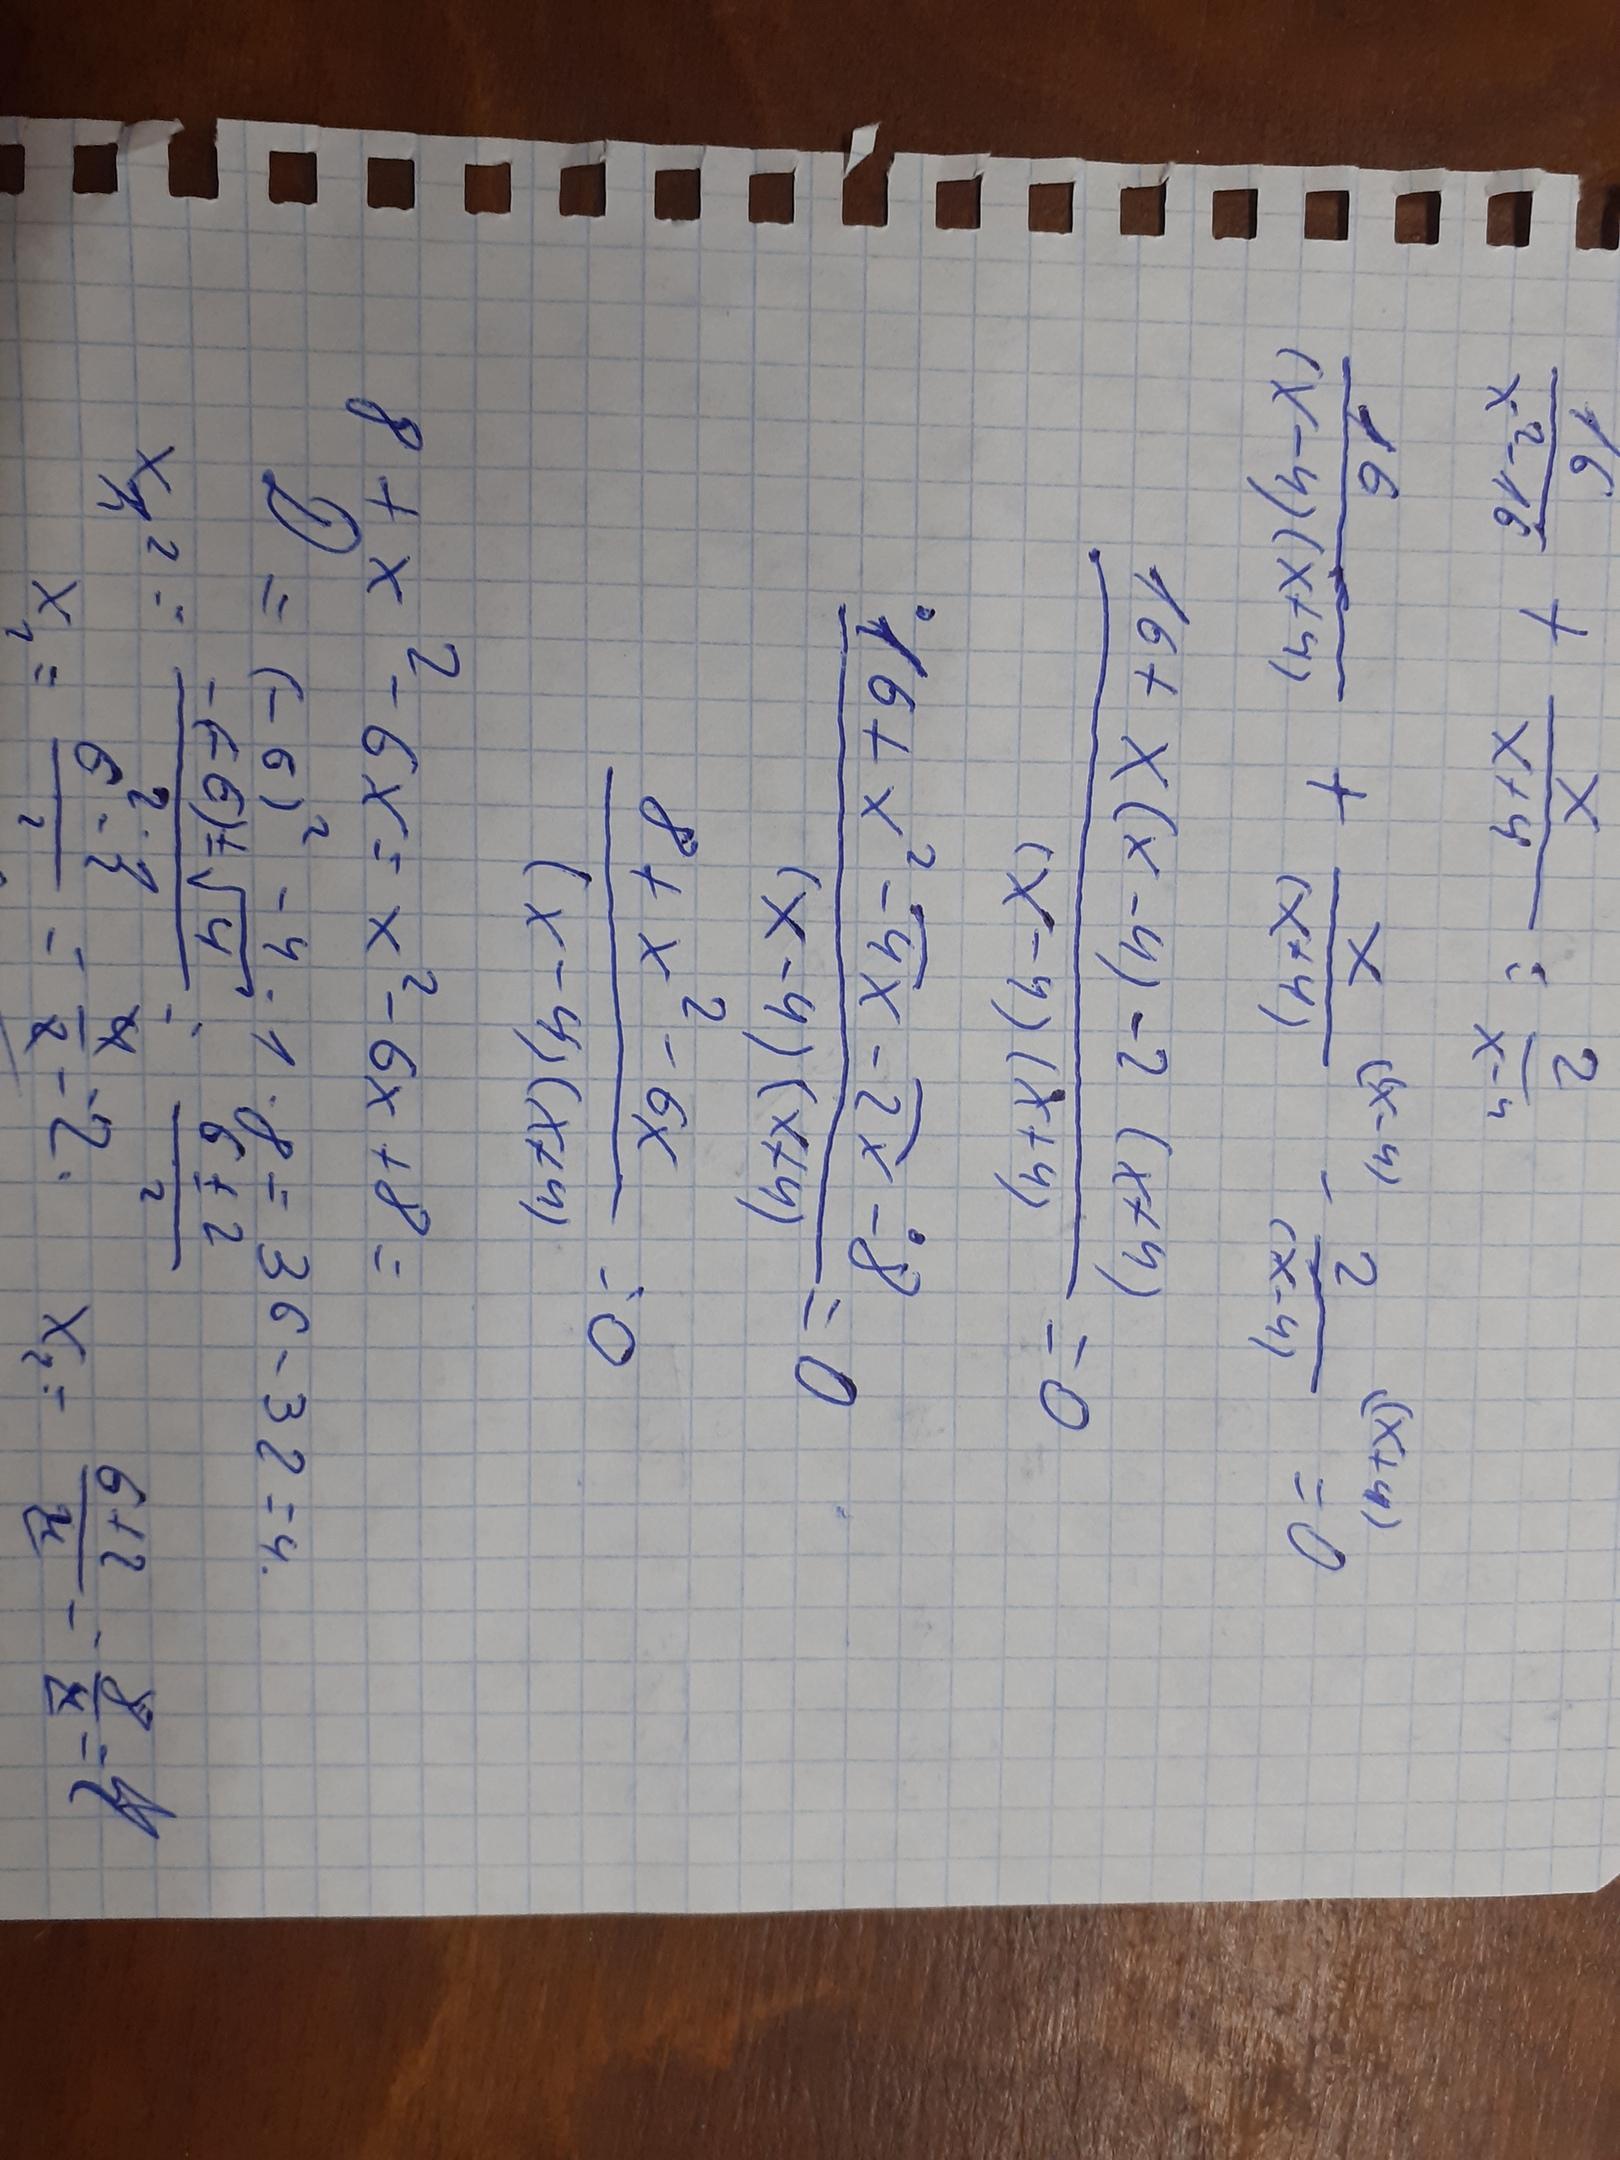 16/(x²-16) + x/(x+4) = 2/(x-4)
16/((x-4)(x+4)) + x/(x+4) (x-4) - 2/(x-4) (x+4) = 0
(16+x(x-4)-2(x+4))/((x-4)(x+4)) = 0
(16+x²-4x-2x-8)/((x-4)(x+4)) = 0
(8+x²-6x)/((x-4)(x+4)) = 0
8+x²-6x = x²-6x+8 =
D = (-6)² -4·1·8 = 36-32 = 4.
x 2 = (-(-6)±√4)/2 = (6±2)/2
x₁ = (6-2)/2 = 4/2 = 2. x₂ = (6+2)/2 = 8/2 = 4